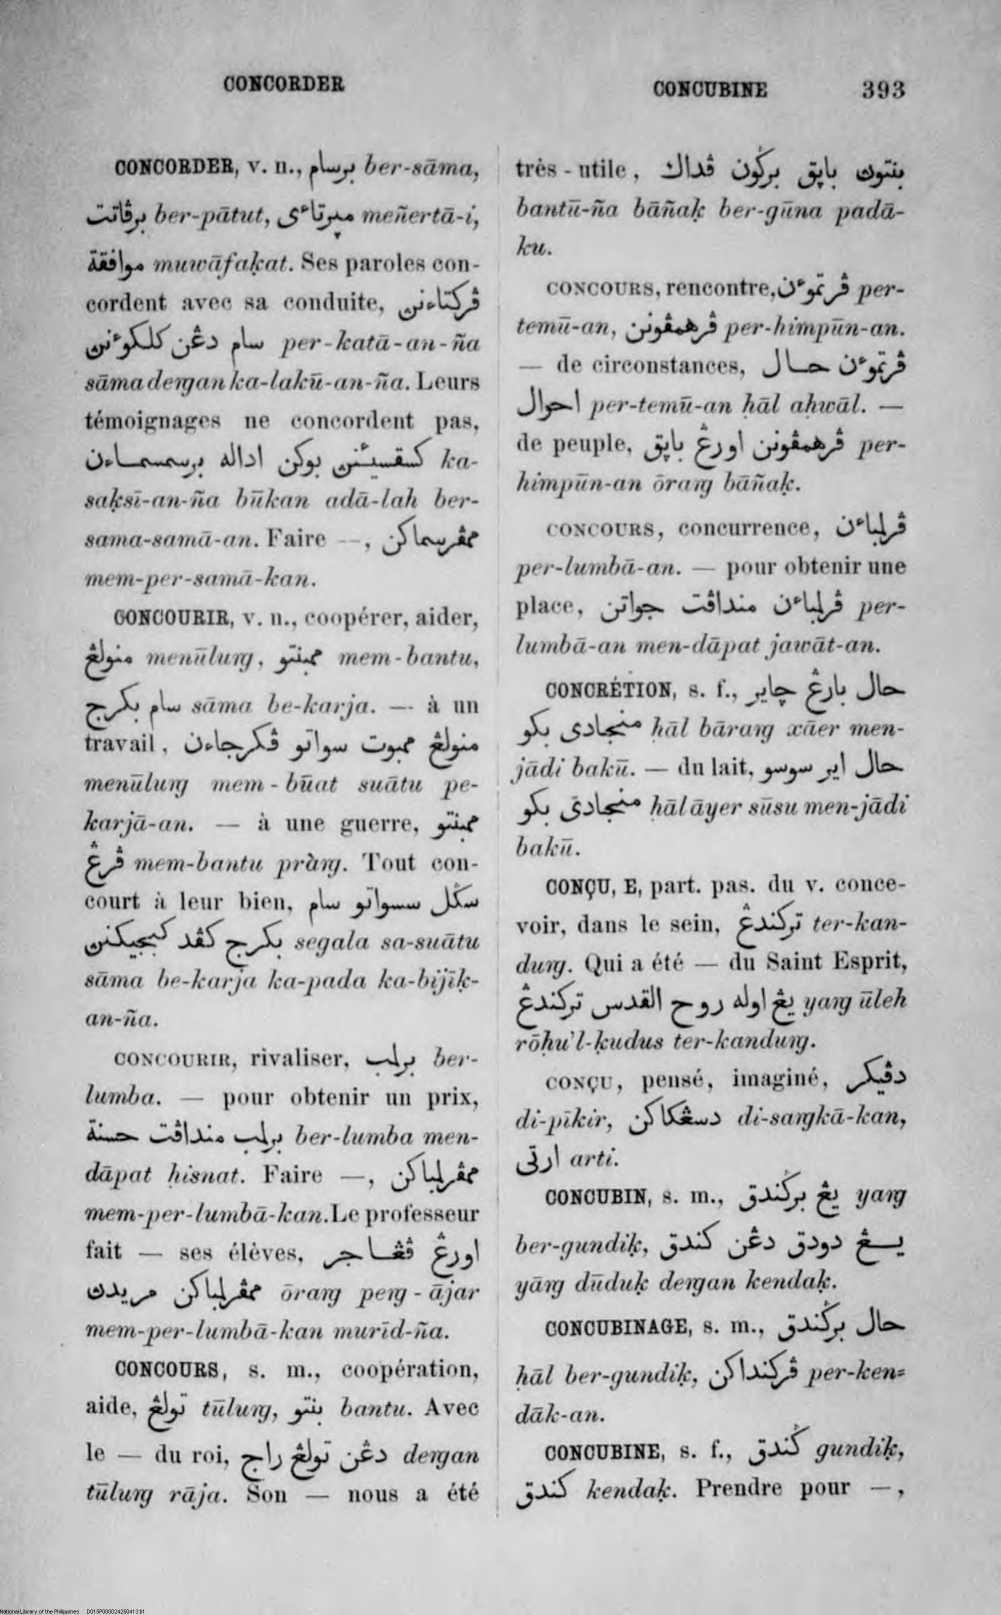 CONCORDER
CONCUBINE 393
CONCORDER, v. n., برسام ber-sāma,
برڤاتت ber-pātut, ميرتاءى meñertā-i,
موافقة muwāfaḳat. Ses paroles con-
cordent avec sa conduite, ڤركتاءنڽ
سام دڠن كلكوءنڽ per-katā-an-ña
sāma deŋgan ka-lakū-an-ña. Leurs
témoignages ne concordent pas,
كسقسيئنڽ بوكن اداله برسمسماءن ka-
saḳsī-an-ña būkan adā-lah ber-
sama-samā-an. Faire —, ممڤرسماكن
mem-per-samā-kan.
CONCOURIR, v. n., coopérer, aider,
منولڠ menūluŋ, ممبنتو mem-bantu,
سام بكرج sāma be-karja. — à un
travail, منولڠ ممبوت سواتو ڤكرجاءن
menūluŋ mem-būat suātu pe-
karjā-an. — à une guerre, ممبنتو
ڤرڠ mem-bantu pràŋ. Tout con-
court à leur bien, سݢل سسواتو سام
بكرج كڤد كبجيكنڽ segala sa-suātu
sāma be-karja ka-pada ka-bijīḳ-
an-ña.
CONCOURIR, rivaliser, برلمب ber-
lumba. — pour obtenir un prix,
برلمب منداڤت حسنة ber-lumba men-
dāpat ḥisnat. Faire —, ممڤرلمباكن
mem-per-lumbā-kan. Le professeur
fait — ses élèves, اورڠ ڤڠاجر
ممڤرلمباكن مريدڽ ōraŋ peŋ-ājar
mem-per-lumbā-kan murīd-ña.
CONCOURS, s. m., coopération,
aide, تولڠ tūluŋ, بنتو bantu. Avec
le — du roi, دڠن تولڠ راج deŋgan
tūluŋ rāja. Son — nous a été
très-utile, بنتوڽ باڽق برݢون ڤداك
bantū-ña bāñaḳ ber-gūna padā-
ku.
CONCOURS, rencontre, ڤرتموءن per-
temū-an, ڤرهمڤونن per-himpūn-an.
— de circonstances, ڤرتموءن حال
احوال per-temū-an ḥāl aḥwāl. —
de peuple, ڤرهمڤونن اورڠ باڽق per-
himpūn-an ōraŋ bāñaḳ.
CONCOURS, concurrence, ڤرلمباءن
per-lumbā-an. — pour obtenir une
place, ڤرلمباءن منداڤت جواتن per-
lumbā-an men-dāpat jawāt-an.
CONCRÉTION, s. f., حال بارڠ چاير
منجادى بكو ḥāl bāraŋ xāer men-
jādi bakū. — du lait, حال اير سوسو
منجادى بكو ḥāl āyer sūsu men-jādi
bakū.
CONÇU, E, part. pas. du v. conce-
voir, dans le sein, تركندڠ ter-kan-
duŋ. Qui a été — du Saint Esprit,
يڠ اوله روح القدس تركندڠ yaŋ ūleh
rōḥu'l-ḳudus ter-kanduŋ.
CONÇU, pensé, imaginé, دڤيكر
di-pīkir, دسڠكاكن di-saŋkā-kan,
ارتى arti.
CONCUBIN, s. m., يڠ برݢندق yaŋ
ber-gundiḳ, يڠ دودق دڠن كندق
yāŋ dūduḳ deŋgan kendaḳ.
CONCUBINAGE, s. m., حال برݢندق
ḥāl ber-gundiḳ, ڤركنداكن per-ken-
dāk-an.
CONCUBINE, s. f., ݢندق gundiḳ,
كندق kendaḳ. Prendre pour —,
National Library of the Philippines